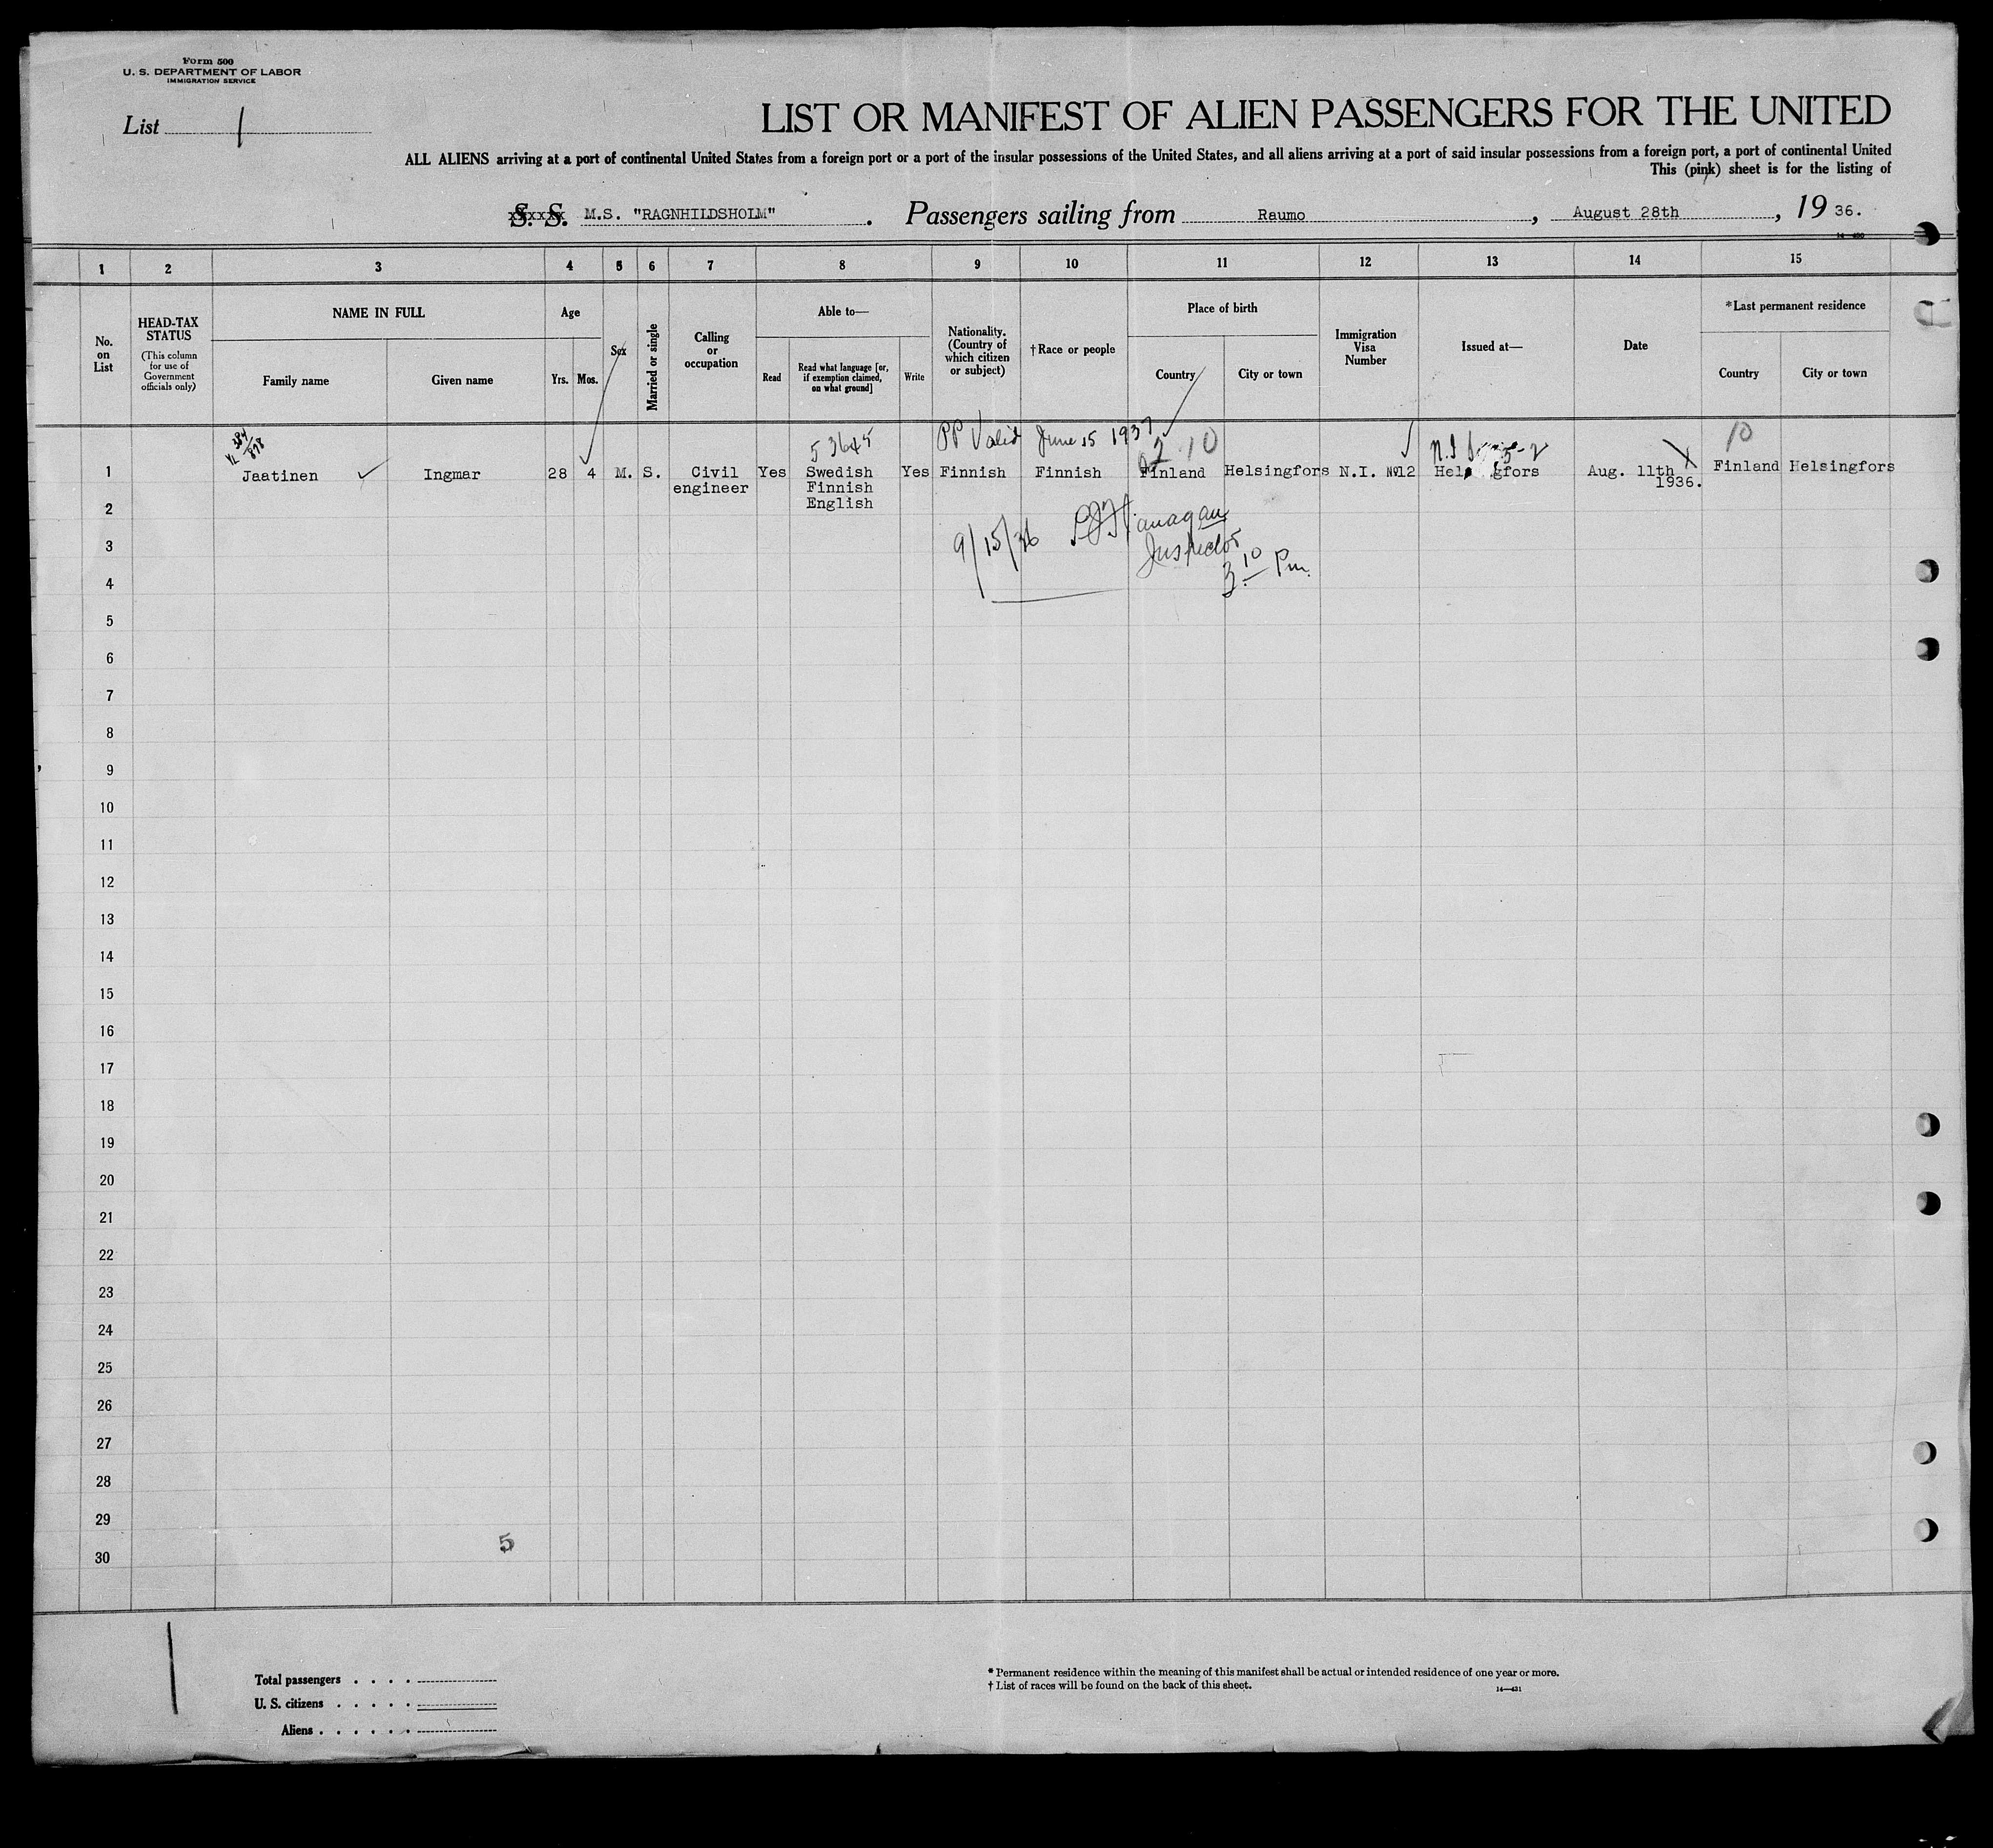 Form 500
U. S. DEPARTMENT OF LABOR
IMMIGRATION SERVICE
List 1
LIST OR MANIFEST OF ALIEN PASSENGERS FOR THE UNITED
ALL ALIENS arriving at a port of continental United States from a foreign port or a port of the insular possessions of the United States, and all aliens arriving at a port of said insular possessions from a foreign port, a port of continental United
This (pink) sheet is for the listing of
S. S. M.S. "RAGNHILDSHOLM". Passengers sailing from Raumo, August 28th, 19 36.
1 2 3 4 5 6 7 8 9 10 11 12 13 14 15
No. on List
HEAD-TAX STATUS
(This column for use of Government officials only)
NAME IN FULL
Family name Given name
Age
Yrs. Mos.
Sex
Married or single
Calling or occupation
Able to—
Read
Read what language [or, if exemption claimed, on what ground]
Write
Nationality. (Country of which citizen or subject)
†Race or people
Place of birth
Country City or town
Immigration Visa Number
Issued at—
Date
*Last permanent residence
Country City or town
53645 PP Valid June 15 1937 2 10 10
1 Jaatinen Ingmar 28 4 M. S. Civil engineer Yes Swedish Finnish English Yes Finnish Finnish Finland Helsingfors N.I. No12 Aug. 11th 1936. Finland Helsingfors
9/15/36 Flanagan
Inspector
3 10 Pm.
2
3
4
5
6
7
8
9
10
11
12
13
14
15
16
17
18
19
20
21
22
23
24
25
26
27
28
29
30
5
Total passengers . . . .
U. S. citizens . . . . .
Aliens . . . . . .
* Permanent residence within the meaning of this manifest shall be actual or intended residence of one year or more.
† List of races will be found on the back of this sheet.
14—431